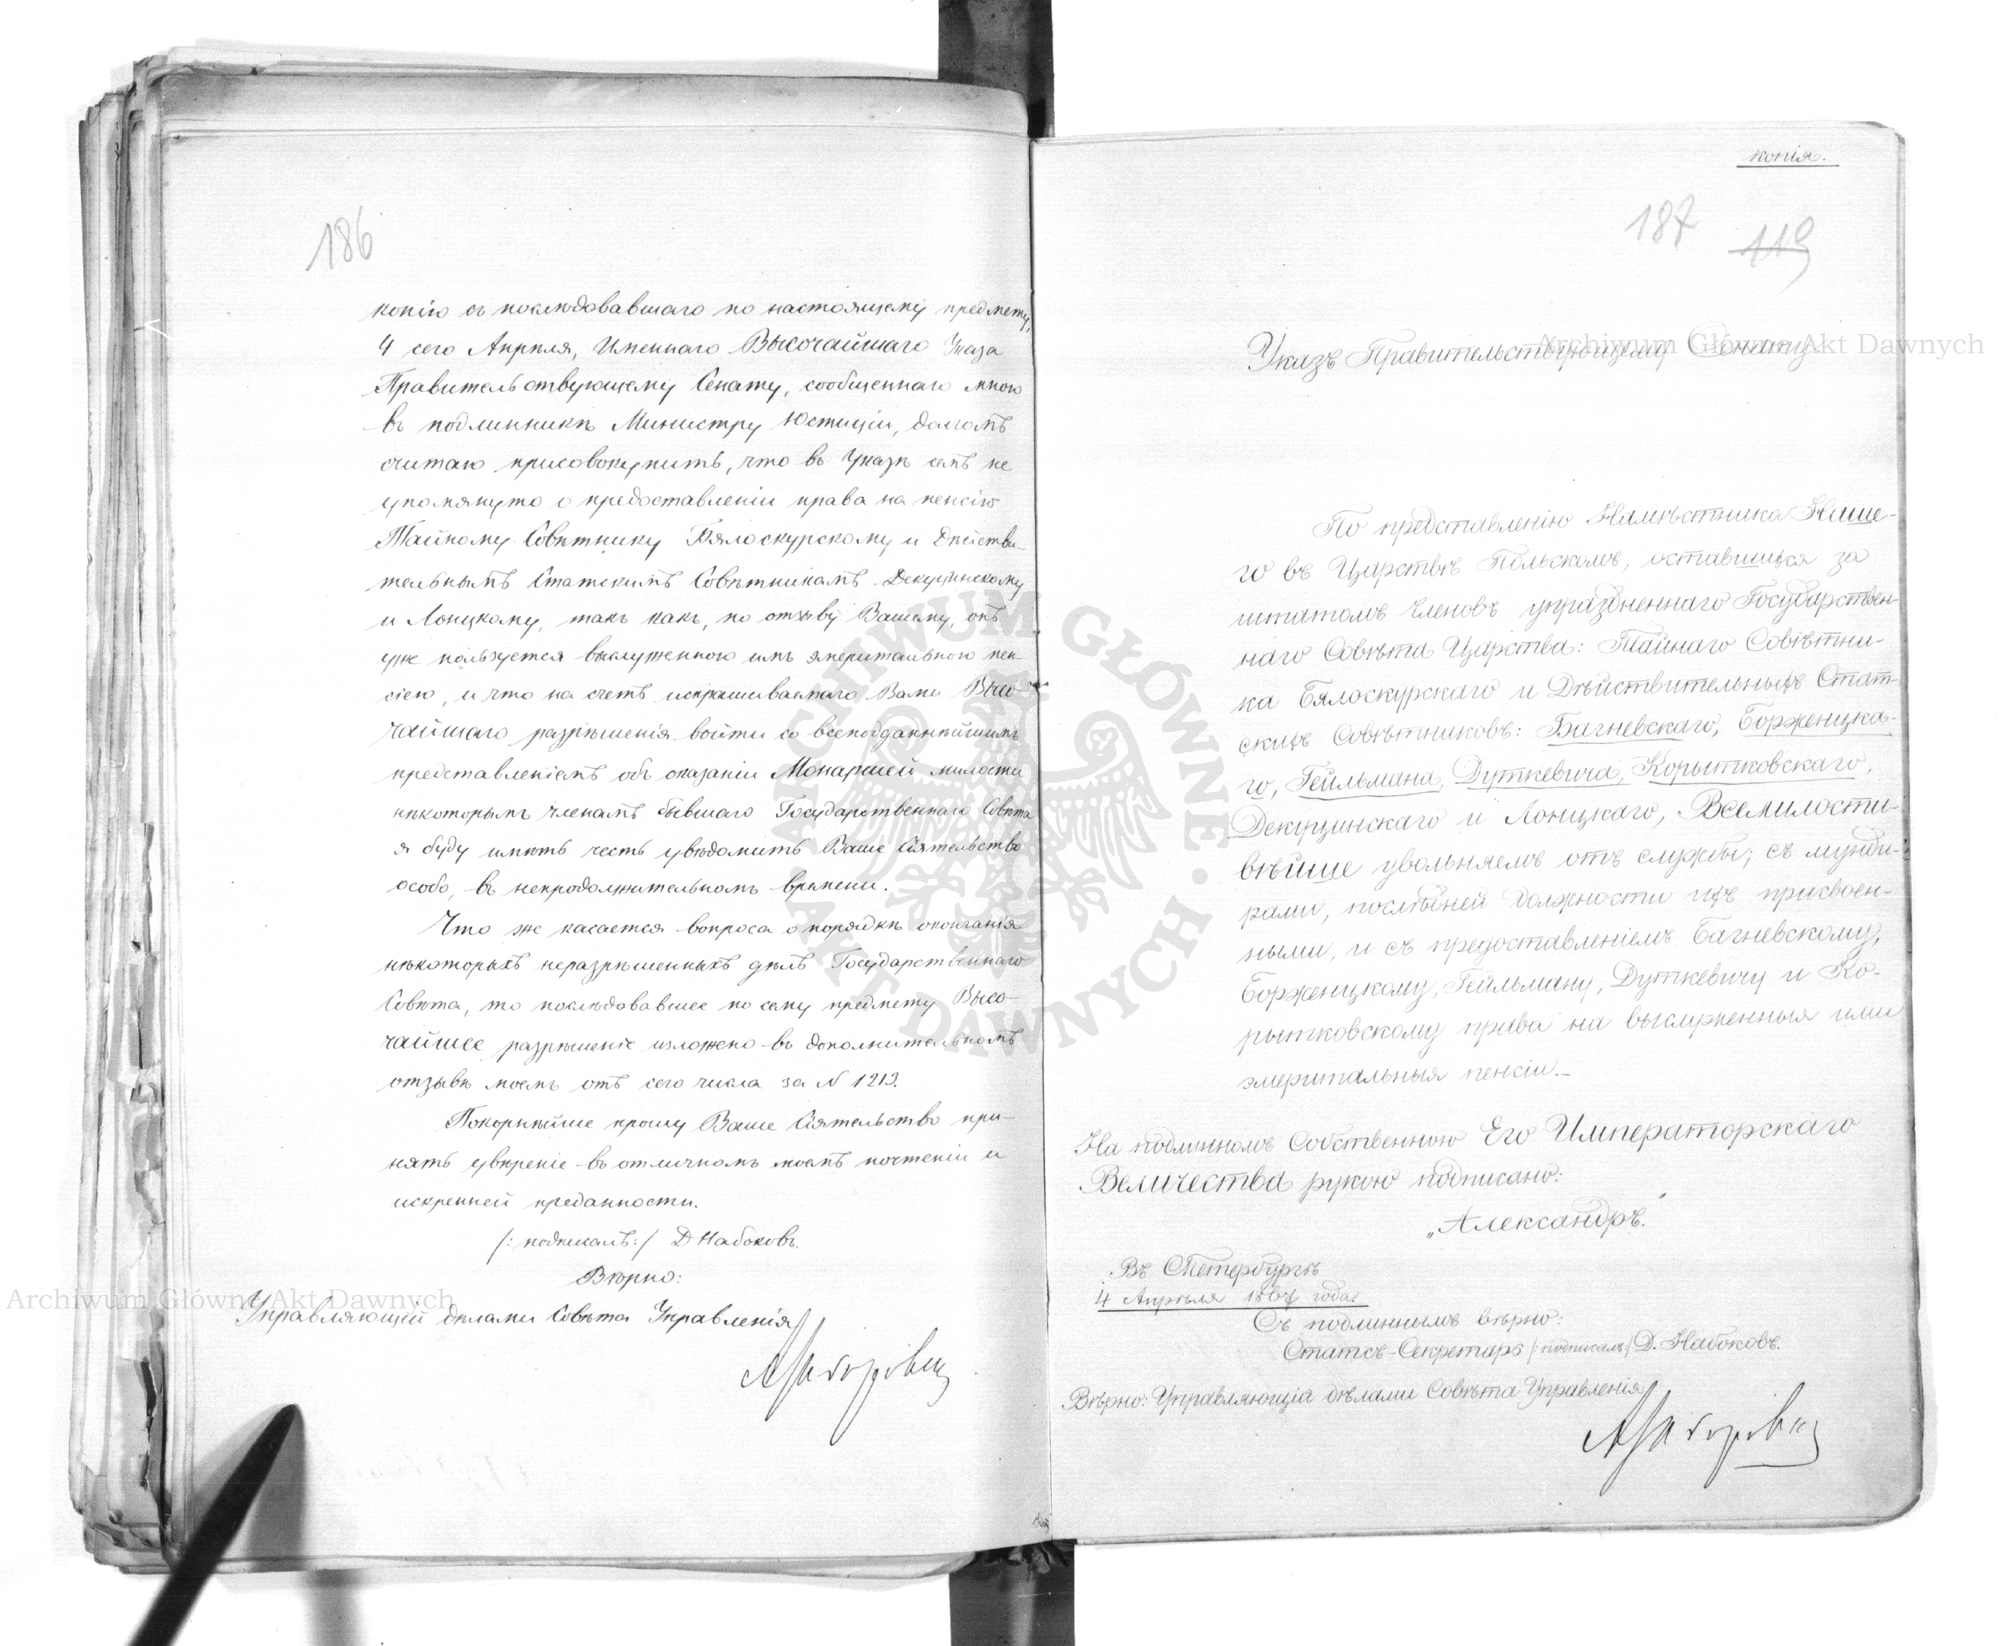 186
копію съ послѣдовавшаго по настоящему предмету,
4 сего Апрѣля, Именнаго Высочайшаго Указа
Правительствующему Сенату, сообщеннаго мною
въ подлинникѣ Министру Юстиціи, долгомъ
считаю присовокупить, что въ Указѣ семъ не
упомянуто о предоставленіи права на пенсію
Тайному Совѣтнику Бялоскурскому и Дѣйстви-
тельнымъ Статскимъ Совѣтникамъ Декуцинскому
и Лонцкому, такъ какъ, по отзыву Вашему, онѣ
уже пользуется выслуженною имъ эмеритальною пен-
сіею, и что на счетъ испрашиваемаго Вами Высо-
чайшаго разрѣшенія войти со всеподданнѣйшимъ
представленіемъ объ оказаніи Монаршей милости
нѣкоторымъ членамъ бывшаго Государственнаго Совѣта
я буду имѣть честь увѣдомить Ваше Сіятельство
особо, въ непродолжительномъ времени.
Что же касается вопроса о порядкѣ окончанія
нѣкоторыхъ неразрѣшенныхъ дѣлъ Государственнаго
Совѣта, то послѣдовавшее по сему предмету Высо-
чайшее разрѣшеніе изложено въ дополнительномъ
отзывѣ моемъ отъ сего числа за № 1213.
Покорнѣйше прошу Ваше Сіятельство при-
нять увѣреніе въ отличномъ моемъ почтеніи и
искренней преданности.
/: подписалъ:/ Д Набоковъ.
Вѣрно:
Управляющій дѣлами Совѣта Управленія
копія.
187 119
Указъ Правительствующему Сенату.
По представленію Намѣстника Наше-
го въ Царствѣ Польскомъ, оставшихся за
штатомъ членовъ упраздненнаго Государствен-
наго Совѣта Царства: Тайнаго Совѣтни-
ка Бялоскурскаго и Дѣйствительныхъ Стат-
скихъ Совѣтниковъ: Багневскаго, Борженцка-
го, Гейльмана, Дуткевича, Корытковскаго,
Декуцинскаго и Лонцкаго, Всемилости-
вѣйше увольняемъ отъ службы, съ мунди-
рами, послѣдней должности ихъ присвоен-
ными, и съ предоставленіемъ Багневскому,
Борженцкому, Гейльману, Дуткевичу и Ко-
рытковскому права на выслуженныя ими
эмеритальныя пенсіи.—
На подлинномъ Собственною Его Императорскаго
Величества рукою подписано:
„Александръ."
Въ СПетербургѣ
4 Апрѣля 1867 года.
Съ подлиннымъ вѣрно:
Статсъ-Секретарь /:подписалъ:/ Д. Набоковъ.
Вѣрно: Управляющій дѣлами Совѣта Управленія
Archiwum Główne Akt Dawnych
Archiwum Główne Akt Dawnych
ARCHIWUM GŁÓWNE AKT DAWNYCH